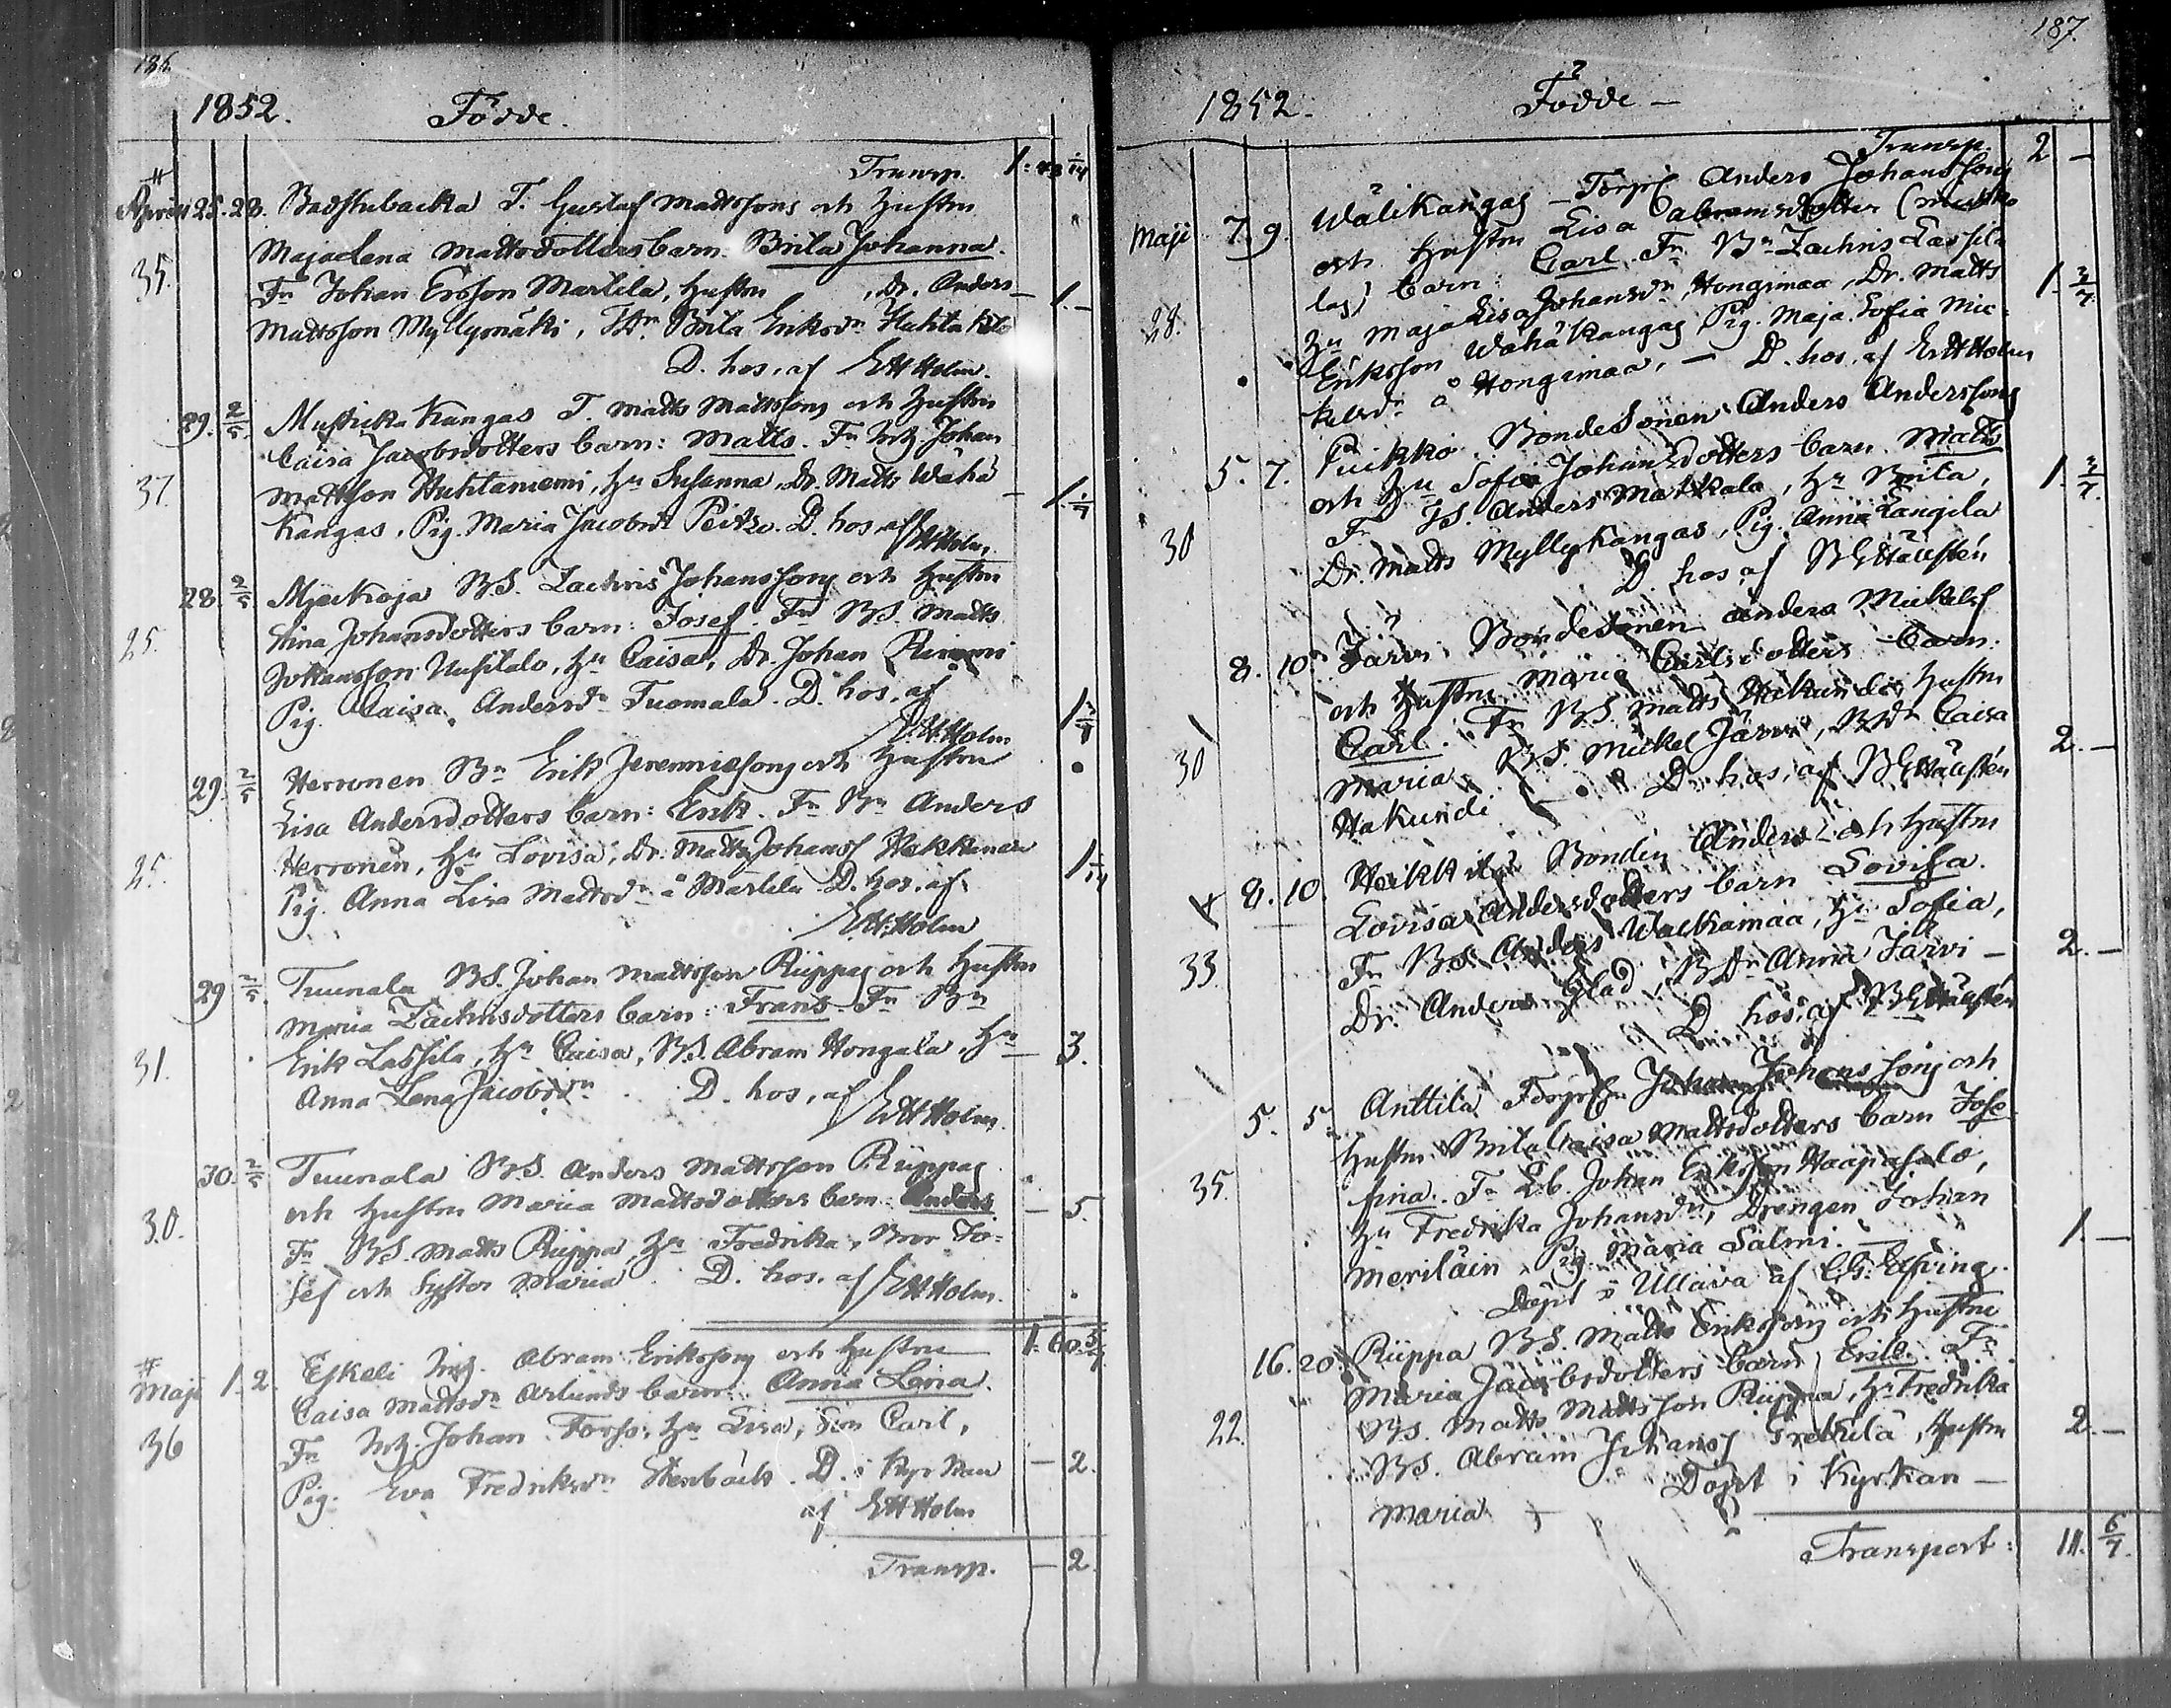 186.
1852. Födde.
Transp. 1. 43 1/14
April 25. 28. Badstubacka T. Gustaf Mattssons och Hustru
Maja Lena Mattsdotters barn. Brita Johanna.
35. Fr. Johan Ersson Martila, Hustru , Dr. Anders — 1. —
Mattsson Myllymäki, Brita Eriksdr
D. hos. af EH Holm.
29. 2/5 Mustikka Kangas T. Matts Mattssons och Hustru
Caisa Jacobsdotters barn: Matts. Fr. Johan
37. Mattsson Huhtaniemi, Hu Susanna, Dr. Matts Wähä — 1. 1/7
Kangas, Pig. Maria Jacobsdr Peitzo. D. hos. af
EH Holm.
28 2/5 Mjöckoja BS. Zachris Johanssons och Hustru
Stina Johansdotters barn: Josef. Fr BS. Matts
25. Johansson Uusitalo, Hu Caisa, Dr. Johan
Pig. Caisa Andersdr Tuomala. D. hos. af
EH Holm
29. 2/5 Herronen Bn Erik Jeremniæsons och Hustru
Lisa Andersdotters barn: Erik. Fr Bn Anders
25. Herronen, Hu Lovisa, Dr. Matts Johanss Hakkinen
Pig. Anna Lisa Mattsdr å Martila D. hos. af 1 1/14
EH Holm
29 2/5 Tuunala BS. Johan Mattsson Riippas och Hustru
Maria Zachrisdotters barn: Frans. Fr Bn
31. Erik Lassila, Hu Caisa, BS. Abram Hongala, Hu — 3.
Anna Lena Jacobsdr D. hos, af
EH Holm.
30. 2/5 Tuunala BS. Anders Mattsson Riippas
och Hustru Maria Mattsdotters barn Anders — 5.
30. Fr BS. Matts Riippa, Hu Fredrika, Bror Jo-
sef och Syster Maria D. hos. af EH Holm.
1. 60. 5/7
Maji 1. 2. Eskeli Abram Erikssons och Hustru
Caisa Mattsdr Arlunds barn: Anna Lena.
36 Fr Johan Forss, Hu Lisa, Son Carl,
Pig. Eva Fredriksdr Stenbäck. D. i Kyrkan — 2.
af EH Holm
Transp. — 2.
187.
1852. Födde —
Transp. 2 —
Maji 7. 9. Wälikangas — Torps Anders Johanssons
och Hustru Lisa Abramsdotter
Barn: Carl. Fr Bn Zachris Lassila
28. Hu Maja Lisa Johansdr, Hongimaa, Dr. Matts 1. 3/7
Eriksson Wähäkangas Pig. Maja Sofia Mic-
kelsdr å Hongimaa, — D. hos. af EH Holm
5. 7. Puikko. Bondesonen Anders Anderssons
och Hu Sofia Johansdotters barn Matts
Fr BS. Anders Matkala, Hu Brita, 1. 3/7.
30 Dr. Matts Myllykangas, Pig. Anna Längila
D. hos af BG Hällstén
8. 10. Järvi, Bondesonen Anders Mickelss
och Hustru Maria Carlsdotters barn:
Carl. Fr BS. Matts Hakunde, Hustru
30 Maria, BS. Mickel Järvi, BDr Caisa 2. —
Hakundi — D. hos, af BG Hällstén
8. 10. Heikkilä Bonden Anders och Hustru
Lovisa Andersdotters barn Lovisa.
33. Fr BS. Anders Walkamaa, Hu Sofia,
Dr. Anders Glad, BDr Anna Järvi — 2. —
D. hos, af BG Hällstén
5. 5. Anttila Torps Johan Johanssons och
Hustru Brita Caisa Mattsdotters barn Jose
35. fina. Fr Lb. Johan Eriksson Haapasalo,
Hu Fredrika Johansdr, Drengen Johan
Meriläin Pig. Maria Salmi. 1. —
Döpt i Ullava af C.G. Elfving.
16. 20. Riippa BS. Matts Erikssons och Hustru
Maria Jacobsdotters barn Erik. Fr
22. BS. Matts Mattsson Riippa, Hu Fredrika
BS. Abram Johanss Gretkilä, Hustru 2. —
Maria Döpt i Kyrkan —
Transport: 11. 6/7.